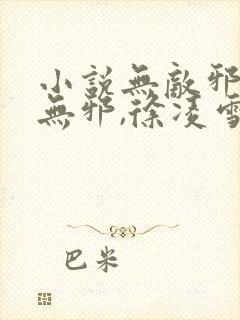 小說無敵邪
無邪,徐凌雪
巴米